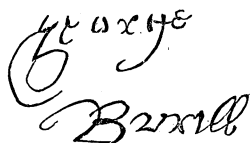 George
Burill